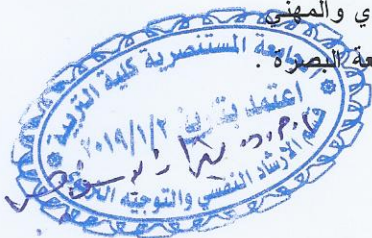 ي والمهني
عة البصرة .
الجامعة المستنصرية كلية التربية
اعتمد بتاريخ ٢٠١٩/١/٢
قسم الارشاد النفسي والتوجيه التربوي